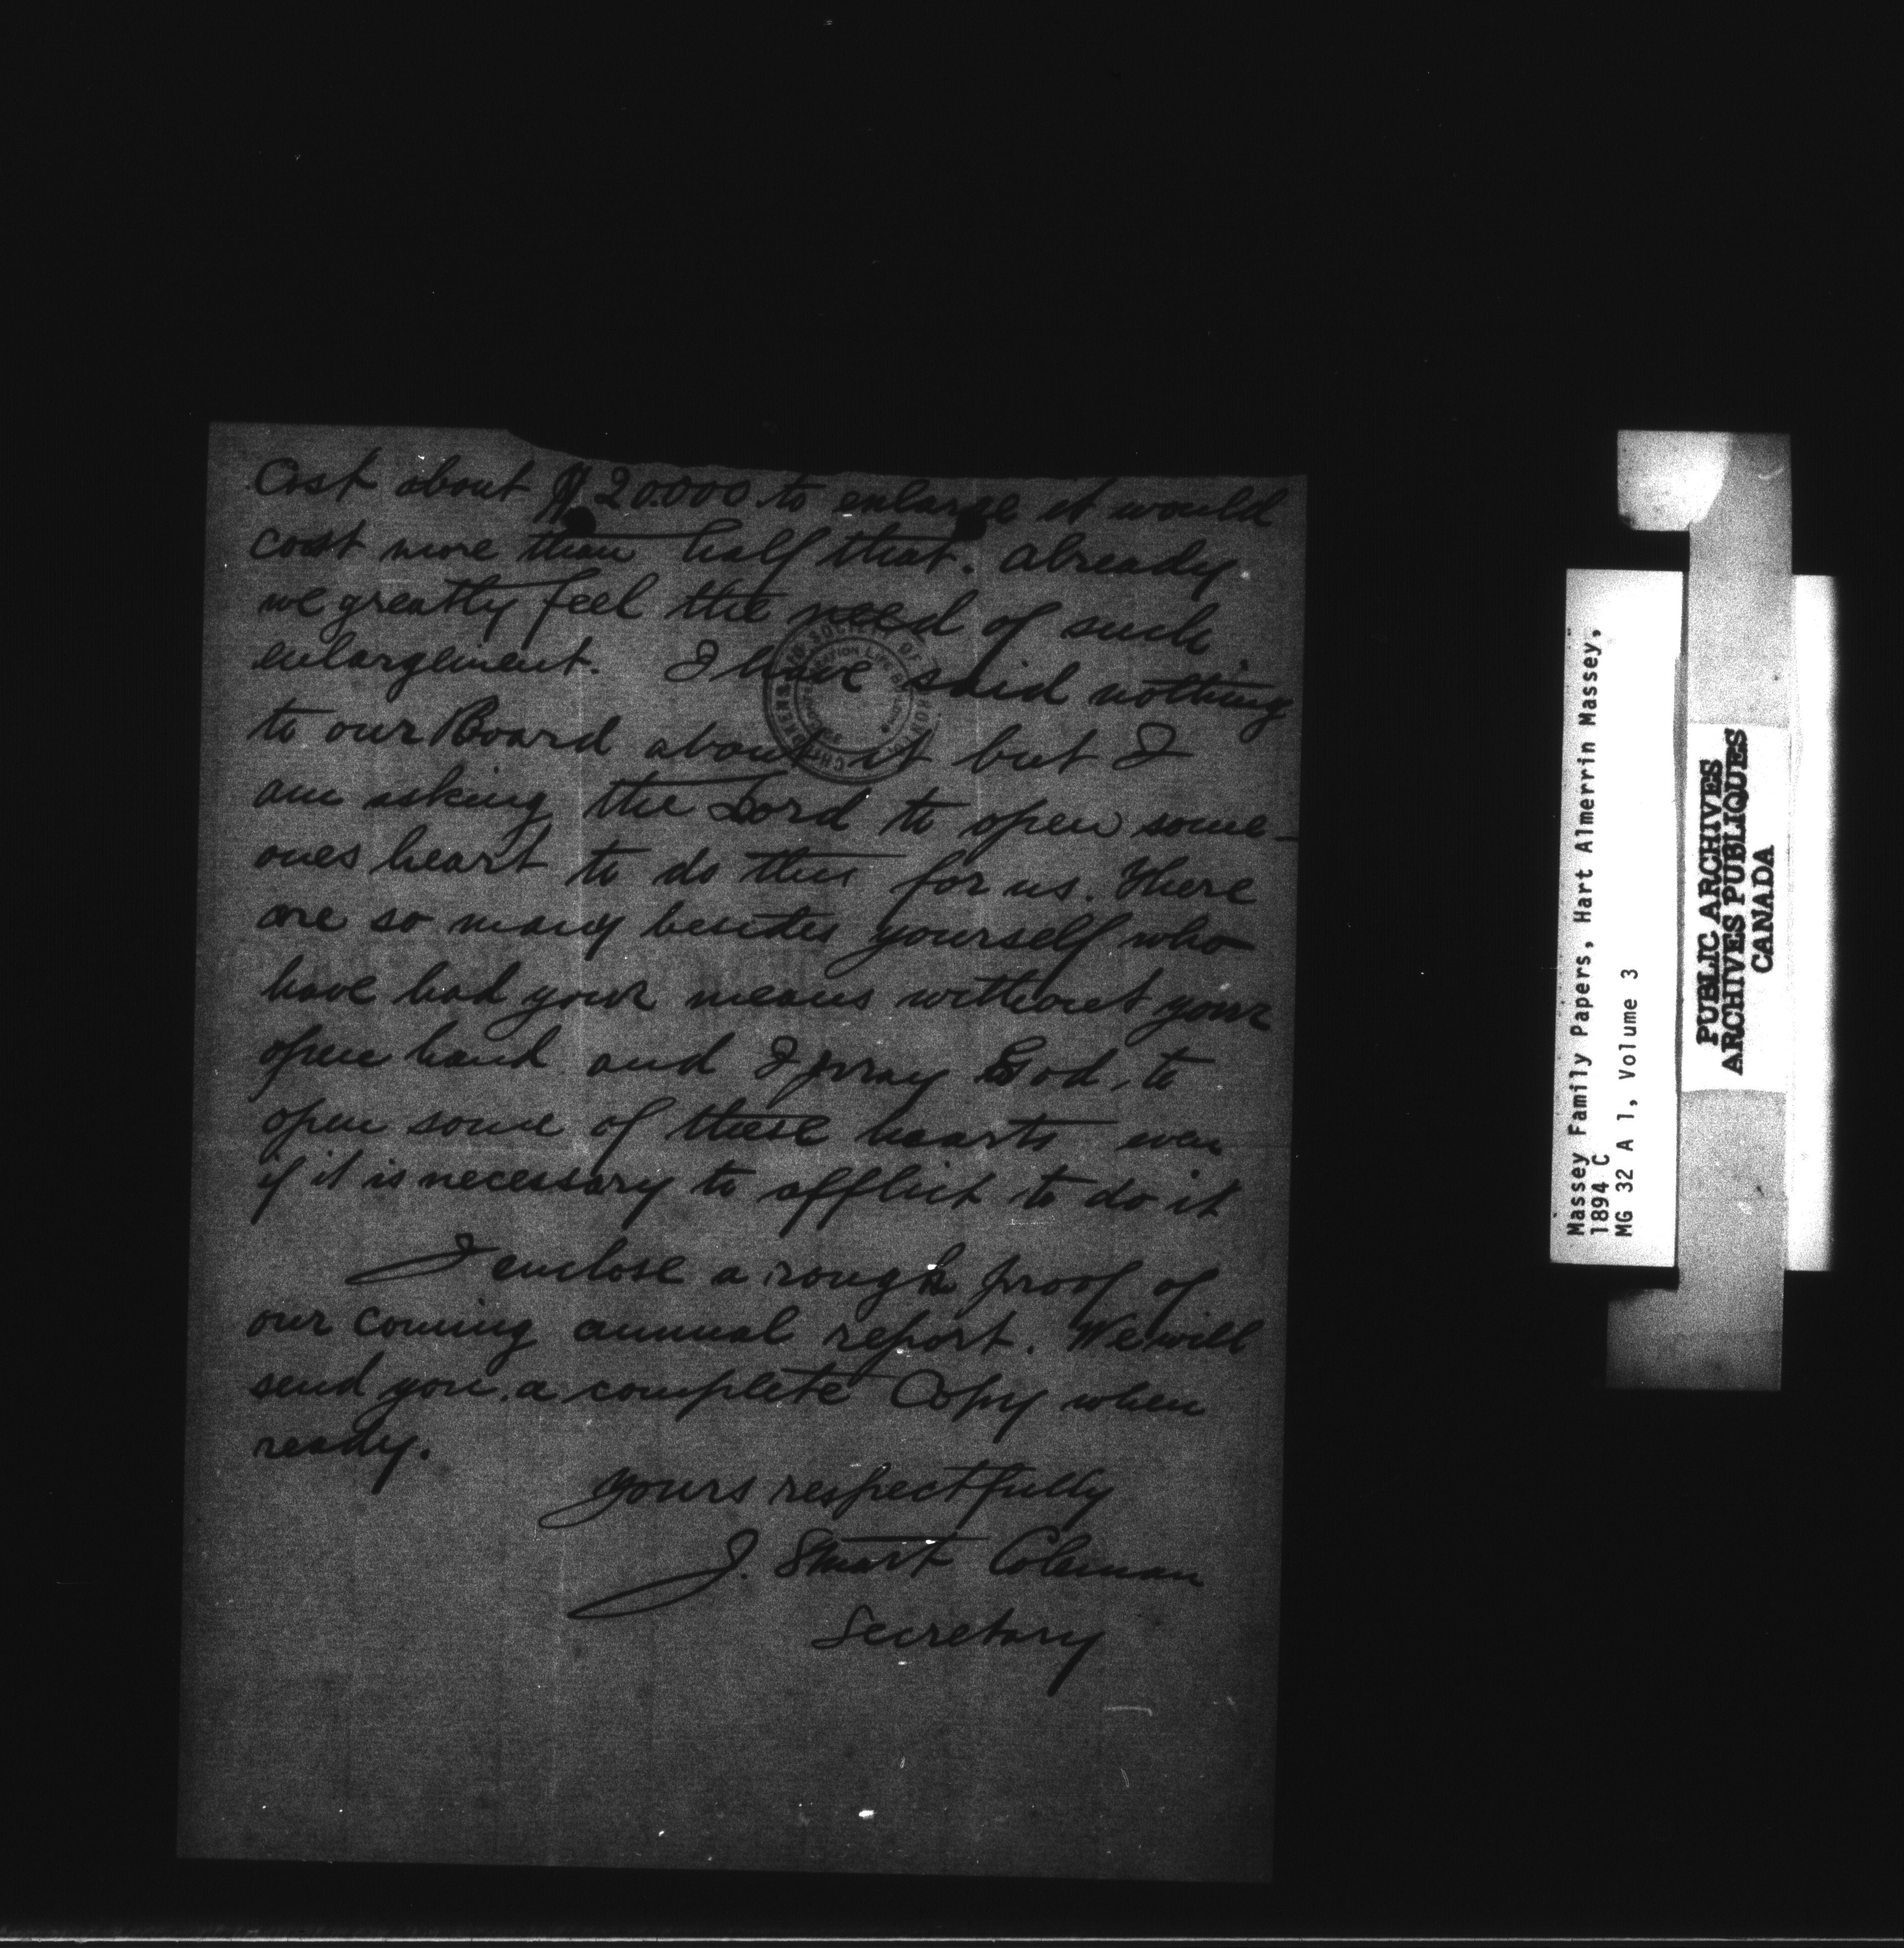 Cost about $20.000 to enlarge it would
cost more than half that. Already
we greatly feel the need of such
enlargement. I have said nothing
to our Board about it but I
am asking the Lord to open some-
ones heart to do this for us. There
are so many besides yourself who
have had your means without your
open hand and I pray God, to
open some of these hearts even
if it is necessary to afflict to do it
I enclose a rough proof of
our coming annual report. We will
send you a complete Copy when
ready.
Yours respectfully
J. Stuart Coleman
Secretary
Massey Family Papers, Hart Almerrin Massey,
1894 C
MG 32 A 1, Volume 3
PUBLIC ARCHIVES
ARCHIVES PUBLIQUES
CANADA